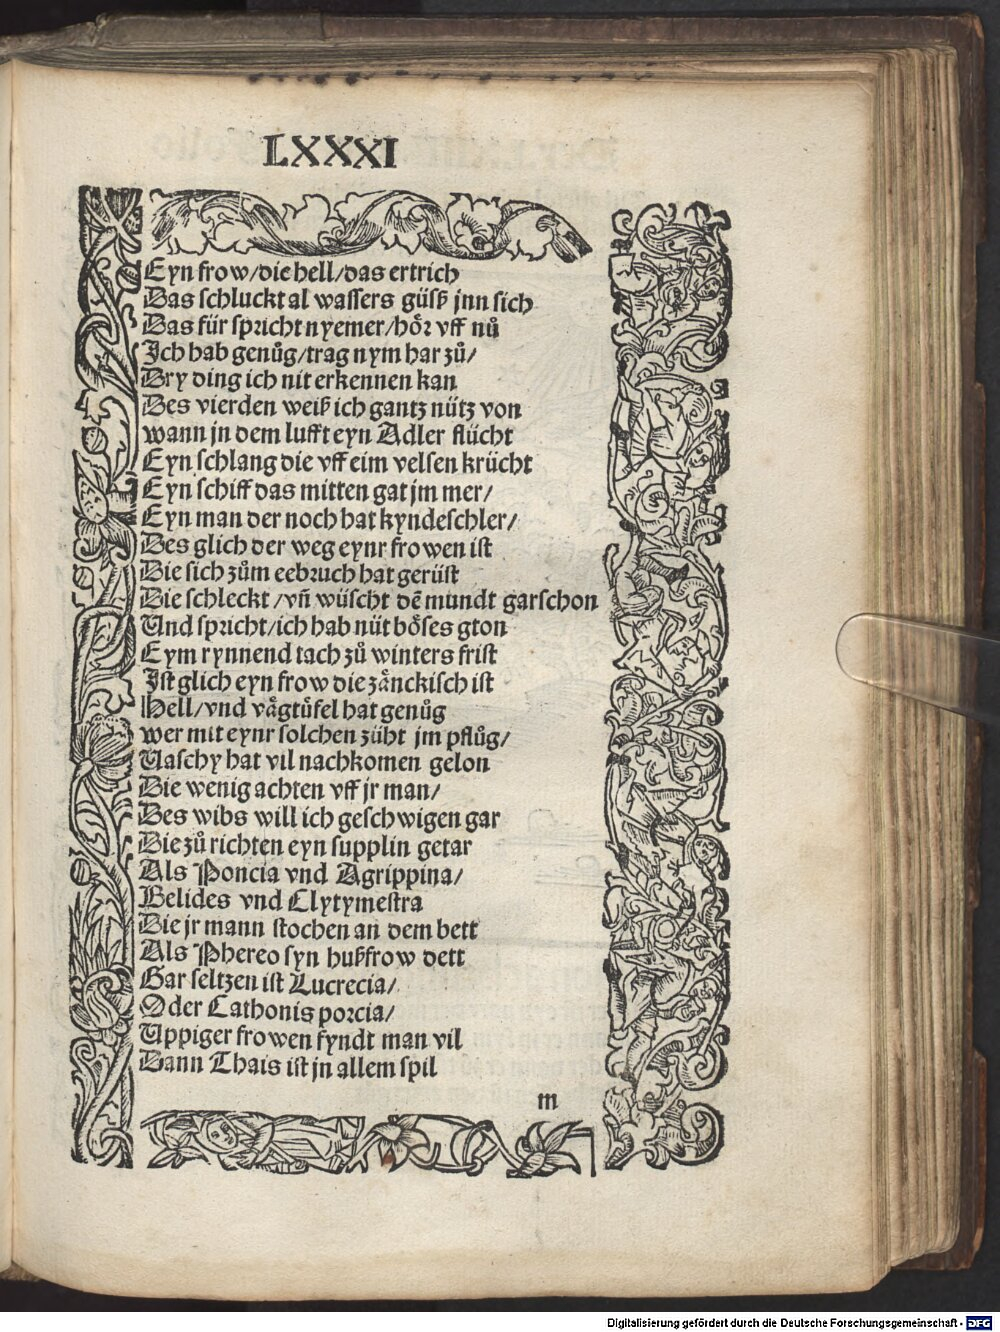 LXXXI
Eyn frow/die hell/das ertrich
Das schluckt al wassers güsß jnn sich
Das für spricht nyemer/hoͤr vff nuͦ
Jch hab genuͦg/trag nym har zuͦ/
Dry ding ich nit erkennen kan
Des vierden weiß ich gantz nütz von
wann jn dem lufft eyn Adler flücht
Eyn schlang die vff eim velsen krücht
Eyn schiff das mitten gat jm mer/
Eyn man der noch hat kyndeschler/
Des glich der weg eynr frowen ist
Die sich zuͦm eebruch hat gerüst
Die schleckt/vñ wüscht dē mundt gar schon
Und spricht/ich hab nüt boͤses gton
Eym rynnend tach zuͦ winters frist
Jst glich eyn frow die zaͤnckisch ist
Hell/vnd vaͤgtüfel hat genuͦg
wer mit eynr solchen züht jm pfluͦg/
Uaschy hat vil nachkomen gelon
Die wenig achten vff jr man/
Des wibs will ich geschwigen gar
Die zuͦ richten eyn supplin getar
Als Poncia vnd Agrippina/
Belides vnd Clytymestra
Die jr mann stochen an dem bett
Als Phereo syn hußfrow dett
Gar seltzen ist Lucrecia/
Oder Cathonis porcia/
Uppiger frowen fyndt man vil
Dann Thais ist jn allem spil
m
Digitalisierung gefördert durch die Deutsche Forschungsgemeinschaft - DFG